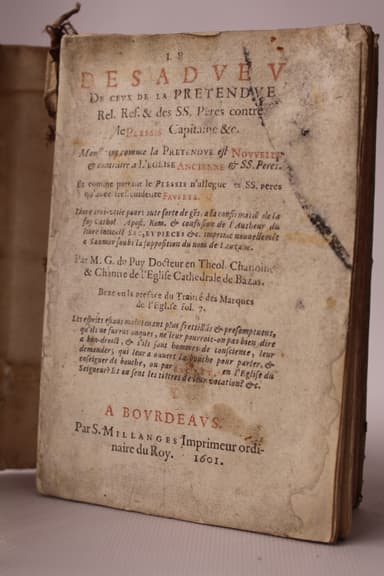 LE
DESADVEV
DE CEVX DE LA PRETENDVE
Rel. Ref. & des SS. Peres contre
le PLESSIS Capitaine &c.
comme la PRETENDVE est NOVVELLE
& contraire a L'EGLISE ANCIENNE & SS. Peres.
Et comme partant le PLESSIS n'allegue es SS. peres
qu'avec
sorte de gés, a la confirmatió de la
foy Cathol. Apost. Rom. & confusion de l'Autheur du
livre intitulé SAC, ET PIECES &c. imprimé nouvellemēt
a Saumur soubs la supposition du nom de
Par M. G. du Puy Docteur en Theol. Chanoine
& Chantre de l'Eglise Cathedrale de Bazas.
Beze en la preface du Traité des Marques
de l'Eglise fol. 7.
Les esprits estans maintenant plus fretillās & presomptueux,
qu'ils ne furent onques, ne leur pourroit-on pas bien dire
a bon-droict, & s'ils sont hommes de conscience, leur
demander, qui leur a ouvert la bouche pour parler, &
enseigner de bouche, ou par en l'Eglise du
Seigneur? Et ou sont les tiltres de leur vocation? &c.
A BOVRDEAVS.
Par S. MILLANGES Imprimeur ordi-
naire du Roy. 1601.